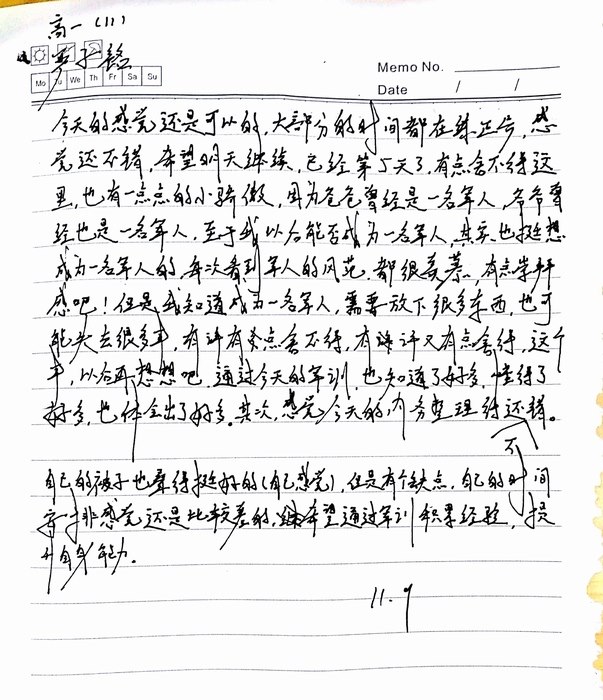 高一(11)
Mo Tu We Th Fr Sa Su
Memo No.
Date / /
今天的感觉还是可以的,大部分的时间都在练正步,感
觉还不错,希望明天继续,已经第5天了,有点舍不得这
里,也有一点点的小骄傲,因为爸爸曾经是一名军人,爷爷曾
经也是一名军人,至于我以后能否成为一名军人,其实也挺想
成为一名军人的,每次看到军人的风范,都很羡慕,有点崇拜
感吧!但是我知道成为一名军人,需要放下很多东西,也可
能失去很多,有点舍不得,有又有点舍得,这个
,以后再想想吧,通过今天的军训,也知道了好多,懂得了
好多,也体会出了好多。其次,感觉今天的内务整理得还错。
不
自己的被子也叠得挺好的(自己感觉),但是有个缺点,自己的时间
感觉还是比较差的,希望通过军训积累经验,提
升自身能力。
11.9